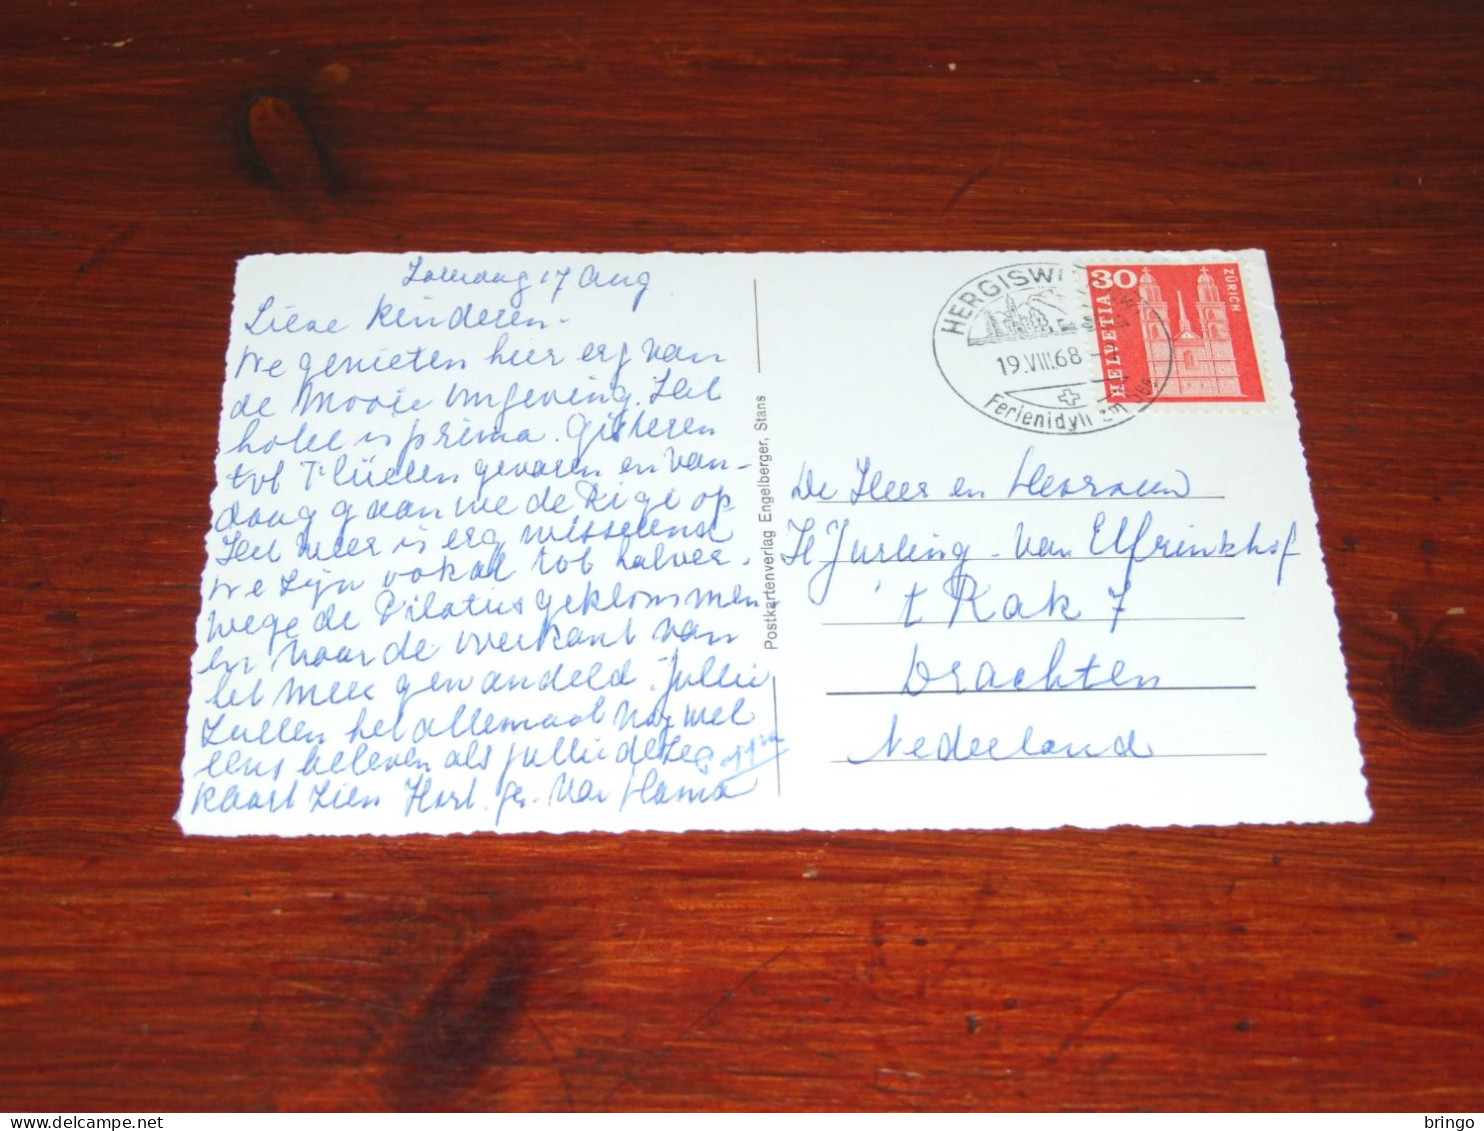 Zaterdag 17 Aug
Lieve Kinderen.
We genieten hier erg van
de mooie omgeving. Het
hotel is prima. Gisteren
tot Flüelen gevaren en van-
daag gaan we de Rigi op
Het weer is erg wisselend
We zijn ook al tot halver-
wege de Pilatus geklommen
en naar de overkant van
het meer gewandeld. Jullie
zullen het allemaal nog wel
eens beleven als jullie deze
kaart zien Hart. gr. van Mama
Pappa
Postkartenverlag Engelberger, Stans
HERGISWI
19.VIII.68
Ferienidyll am
HELVETIA
30
ZÜRICH
De Heer en Mevrouw
H Jurling - van Elfrinkhof
't Kak 7
Drachten
Nederland
bringo